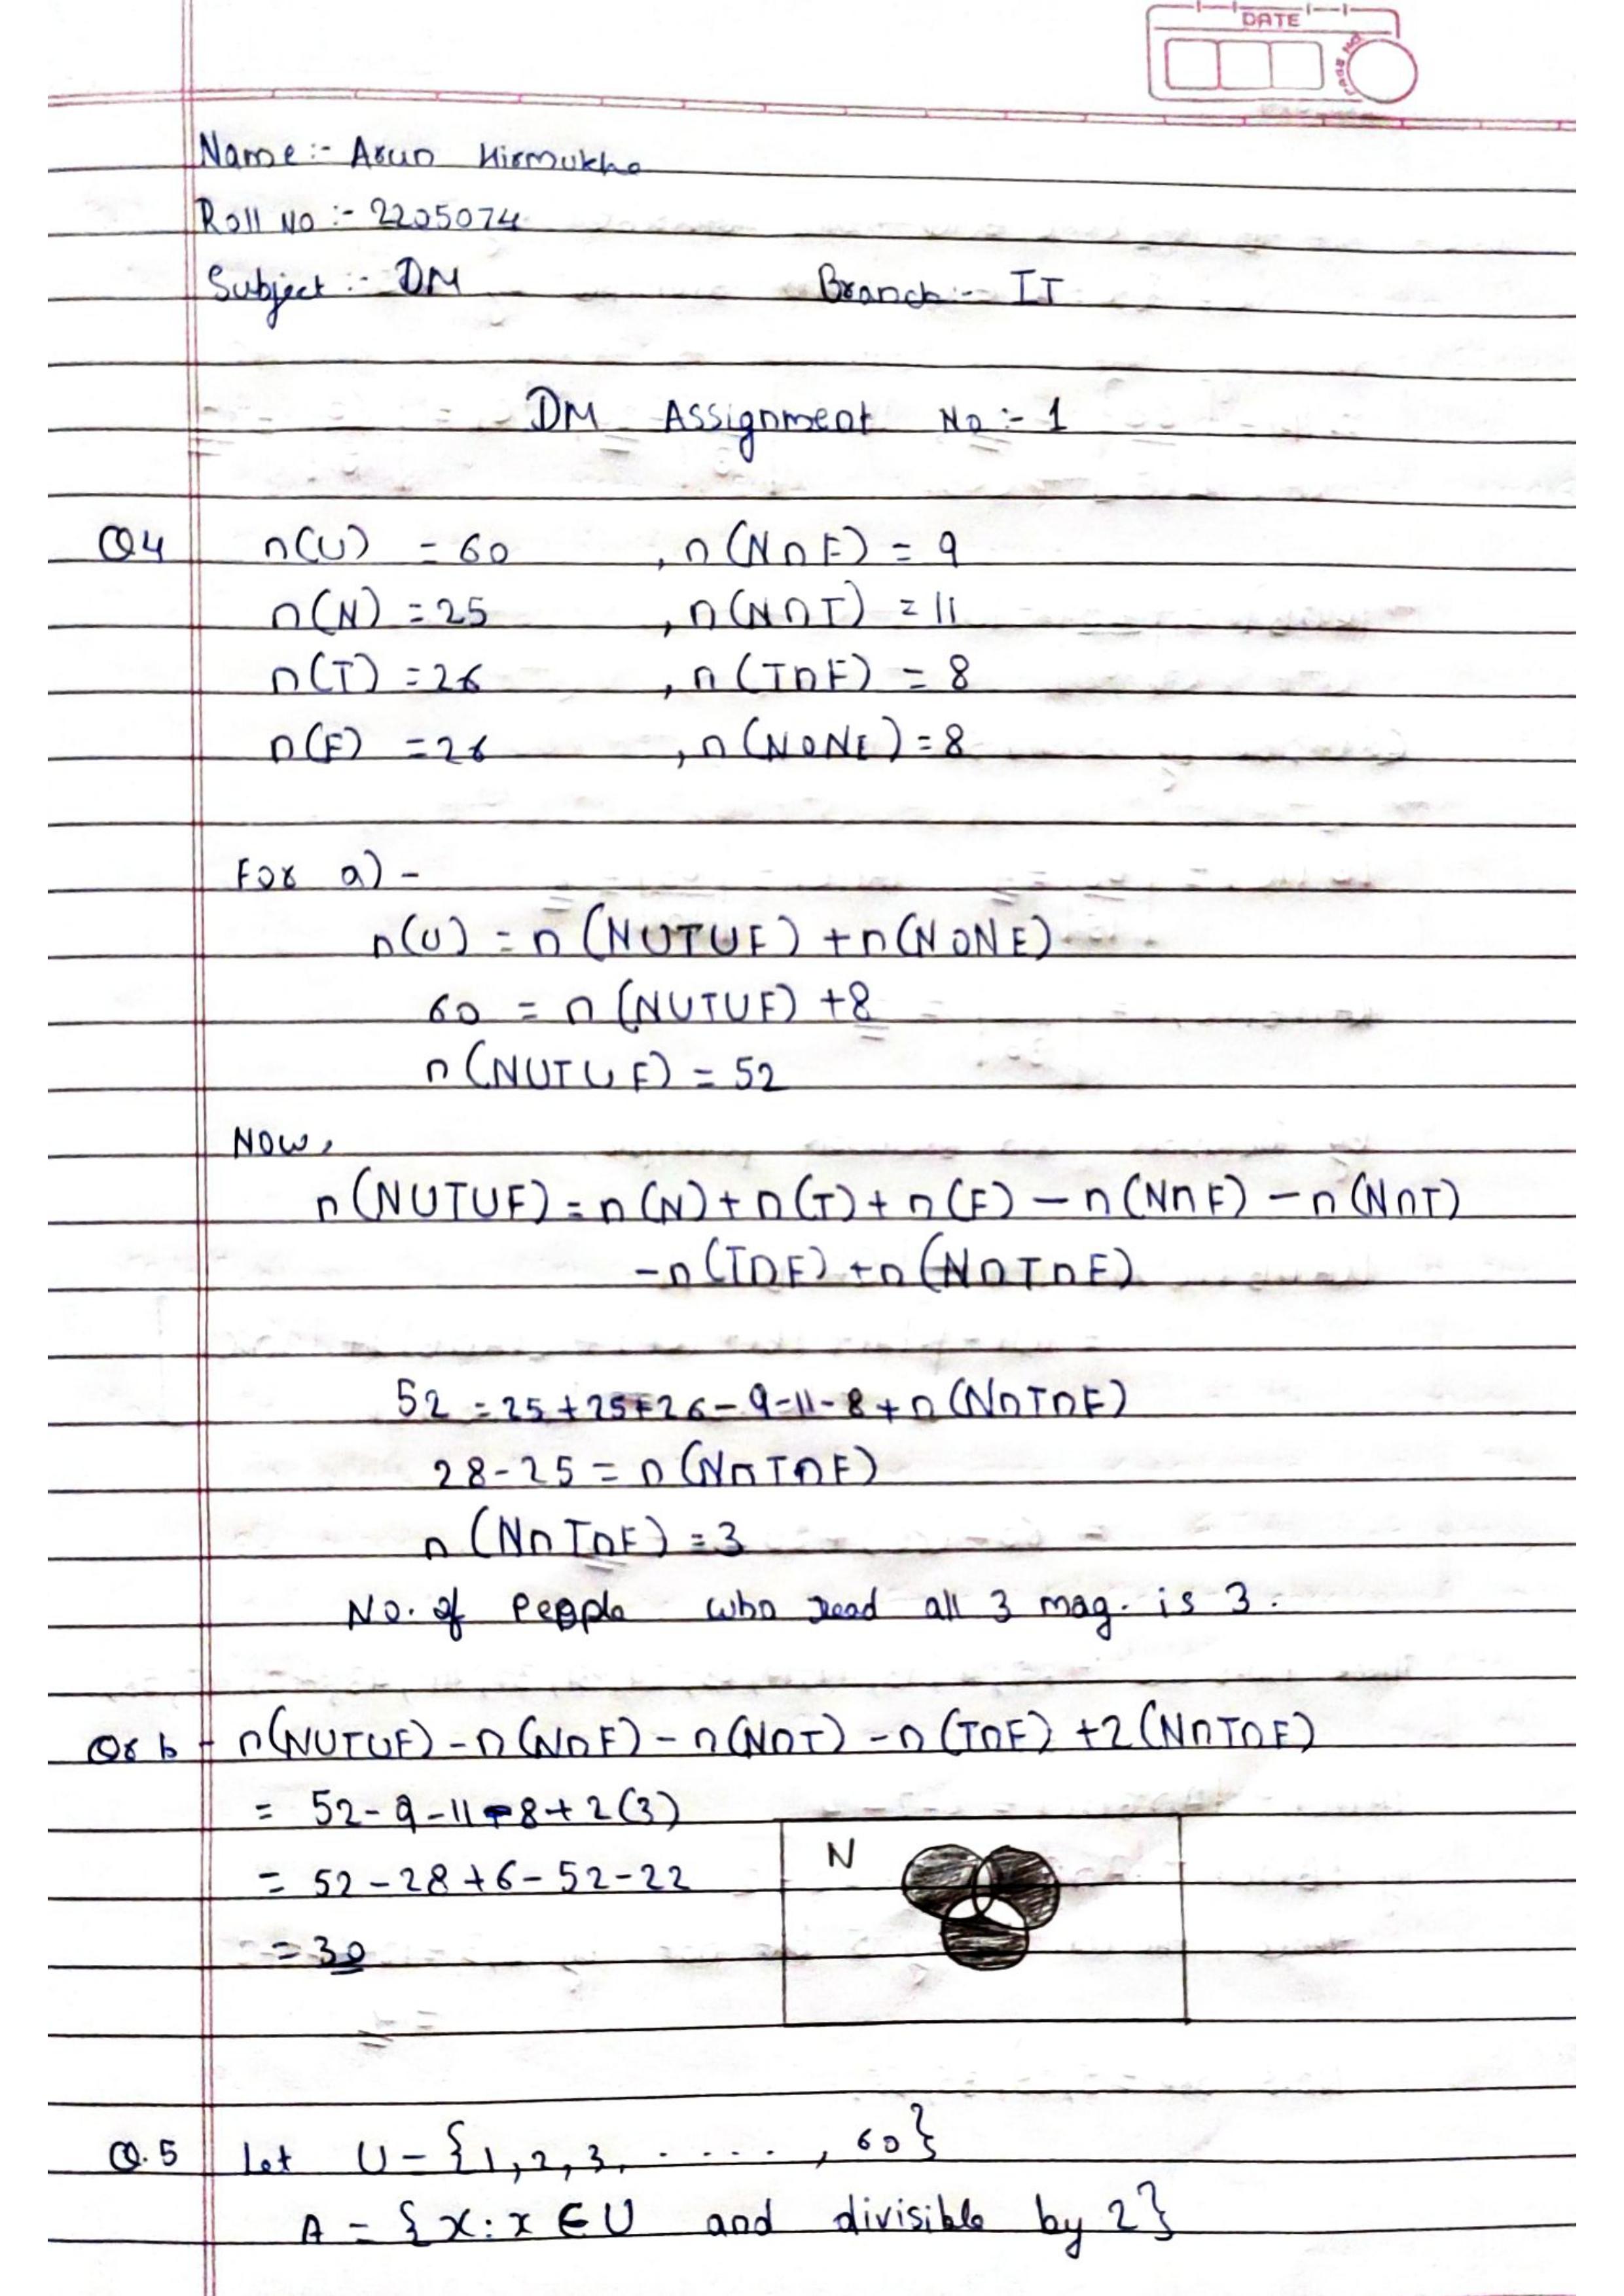 DATE
Name :- Arun Hirmukhe
Roll No :- 2205074
Subject :- DM Branch :- IT
DM Assignment No :- 1
Q4 n(U) = 60 , n(N∩F) = 9
n(N) = 25 , n(N∩T) = 11
n(T) = 26 , n(T∩F) = 8
n(F) = 26 , n(NONE) = 8
For a) -
n(U) = n(N∪T∪F) + n(NONE)
60 = n(N∪T∪F) + 8
n(N∪T∪F) = 52
Now,
n(N∪T∪F) = n(N) + n(T) + n(F) - n(N∩F) - n(N∩T)
- n(T∩F) + n(N∩T∩F)
52 = 25 + 25 + 26 - 9 - 11 - 8 + n(N∩T∩F)
28 - 25 = n(N∩T∩F)
n(N∩T∩F) = 3
No. of people who read all 3 mag. is 3.
Or b - n(N∪T∪F) - n(N∩F) - n(N∩T) - n(T∩F) + 2(N∩T∩F)
= 52 - 9 - 11 - 8 + 2(3)
= 52 - 28 + 6 - 52 - 22
N
= 30
Q.5 Let U - {1, 2, 3, . . . . . , 60}
A = {x : x ∈ U and divisible by 2}